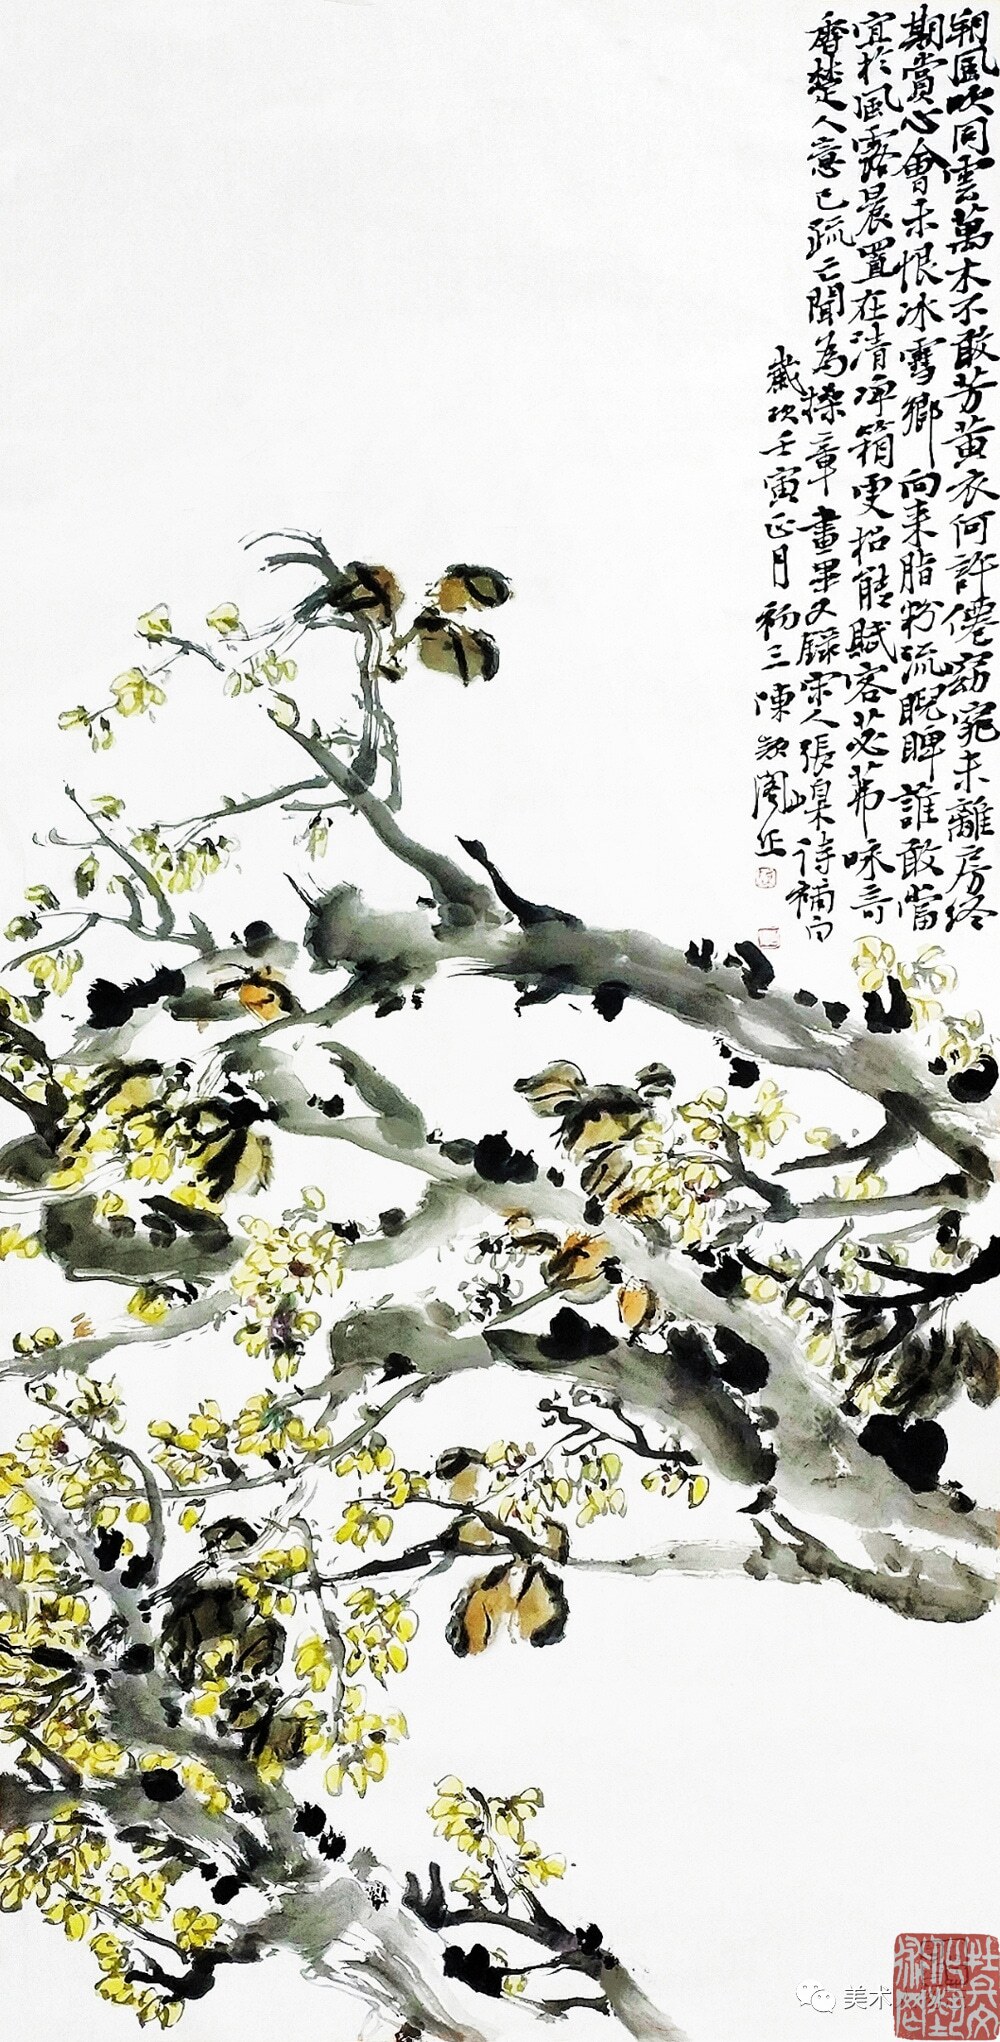 朔風吹同雲萬木不敢芳黃衣何許僊窈窕未離房終
期賞心會不恨冰雪鄉向來脂粉流睨睥誰敢當
宜於風露晨置在清淨箱更招能賦客苾茀咏奇
香楚人意已疏亡聞為揉章畫畢又錄宋人張嵲詩補白
歲次壬寅正月初三陳
美术